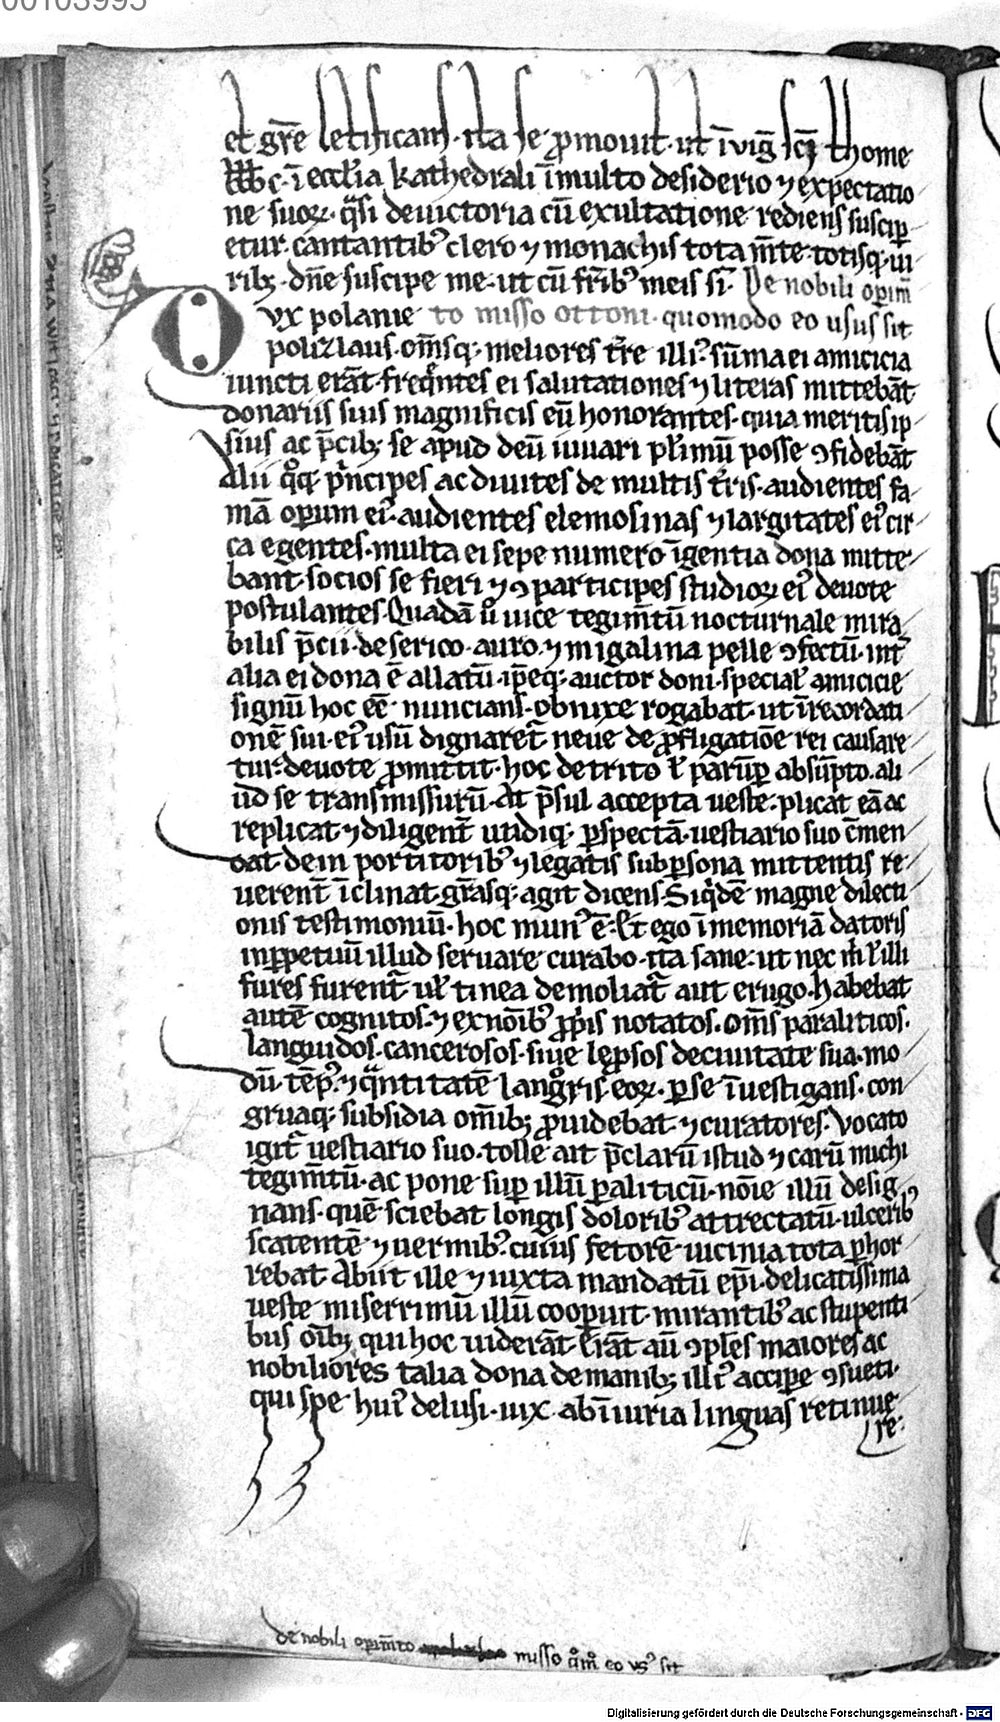 00103995
et gr̄e letificans. ita se ꝓmouit. ut ī uiḡ sc̄i thome
in ecclīa kathedrali ī multo desiderio ⁊ expectatio
ne suoꝝ. q̄si de uictoria cū exultatione rediens suscip̄
etur. cantantibꝰ clero ⁊ monachis tota m̄te totisqꝫ ui
ribꝫ. dn̄e suscipe me. ut cū fr̄ibꝰ meis si. De nobili opim̄
vx polanie to misso ottoni. quomodo eo usus sit
polizlaus. om̄sqꝫ meliores tr̄e illiꝰ. sūma ei amicicia
iuncti erāt. freq̄ntes ei salutationes ⁊ literas mittebāt
donariis suis magnificis eū honorantes. quia meritis ip
sius ac p̄cibꝫ se apud deū iuuari pl̄imū posse ꝯfidebāt
Alii qͦqꝫ pͥncipes ac diuites de multis tr̄is. audientes fa
mā operum eiꝰ. audientes elemosinas ⁊ largitates eiꝰ cir
ca egentes. multa ei sepe numero īgentia dona mitte
bant. socios se fieri ⁊ ꝯparticipes studioꝝ eiꝰ deuote
postulantes. Quadā uͦ uice tegim̄tū nocturnale mira
bilis p̄cii. de serico. auro. ⁊ migalina pelle ꝯfectū. int̄
alia ei dona ē allatū. ip̄eqꝫ auctor doni. special̄ amicicie
signū hoc eē nuncians. obnixe rogabat. ut ī recordati
onē sui. eiꝰ usū dignaret̄ neue de ꝓfligatiōe rei causare
tur. deuote ꝓmittit. hoc detrito ł parūꝑ absūpto. ali
ud se transmissurū. At p̄sul accepta ueste. plicat eā ac
replicat ⁊ diligent̄ undiqꝫ ꝑspectā. uestiario suo c̄men
dat. dein portitoribꝰ ⁊ legatis sub ꝑsona mittentis re
uerent̄ īclinat. gr̄asqꝫ agit dicens. Siqͥdē magne dilecti
onis testimoniū. hoc munꝰ ē. Et ego ī memoriā datoris
inꝑpetuū illud seruare curabo. ita sane. ut nec m̄ ł illi
fures furent̄ ul̄ tinea demoliat̄ aut erugo. habebat
autē cognitos. ⁊ ex noībꝰ ꝓpͥis notatos. om̄s paraliticos.
languidos. cancerosos. siue lep̄sos de ciuitate sua. mo
dū. tēpꝰ. ⁊ qͣntitatē langͦris eoꝝ. ꝑ se īuestigans. con
gruaqꝫ subsidia om̄ibꝫ ꝓuidebat. ⁊ curatores. Vocato
igit̄ uestiario suo. tolle ait p̄clarū istud ⁊ carū michi
tegim̄tū. ac pone suꝑ illū ꝑaliticū. noīe illū desig
nans. quē sciebat longis doloribꝰ attrectatū. ulceribꝰ
scatentē ⁊ uermibꝰ. cuius fetorē uicinia tota ꝑhor
rebat. Abiit ille ⁊ iuxta mandatū ep̄i. delicatissima
ueste miserrimū illū cooꝑuit. mirantibꝰ ac stupenti
bus oībꝫ qui hoc uiderāt. Erāt aū ꝯpl̄es maiores ac
nobiliores talia dona de manibꝫ illiꝰ accipe ꝯsueti.
qui spe huiꝰ delusi. uix ab īiuria linguas retinue
re.
de nobili opim̄to misso qͦm̄ eo vsꝰ sit
Digitalisierung gefördert durch die Deutsche Forschungsgemeinschaft - DFG